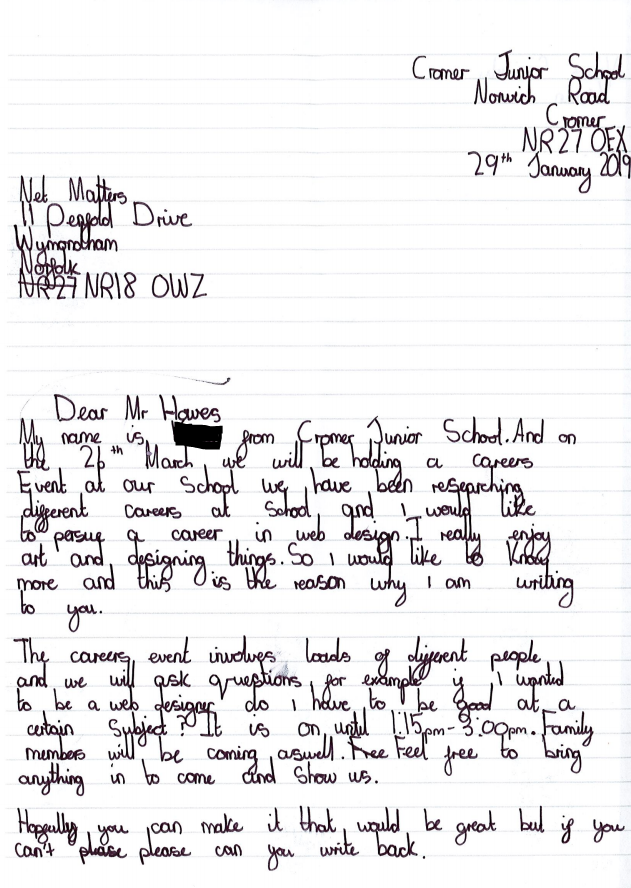 Cromer Junior School
Norwich Road
Cromer
NR27 OEX
29th January 2019
Net Matters
11 Penfold Drive
Wymondham
Norfolk
NR27 NR18 OWZ
Dear Mr Howes
My name is from Cromer Junior School. And on
the 26th March we will be holding a careers
Event at our School we have been researching
different careers at School and I would like
to persue a career in web design. I really enjoy
art and designing things. So I would like to Know
more and this is the reason why I am writing
to you.
The careers event involves loads of different people
and we will ask questions, for example if I wanted
to be a web designer do I have to be good at a
certain Subject? It is on until 1:15pm-3:00pm. Family
members will be coming aswell. Free Feel free to bring
anything in to come and Show us.
Hopefully you can make it that would be great but if you
can't please please can you write back.